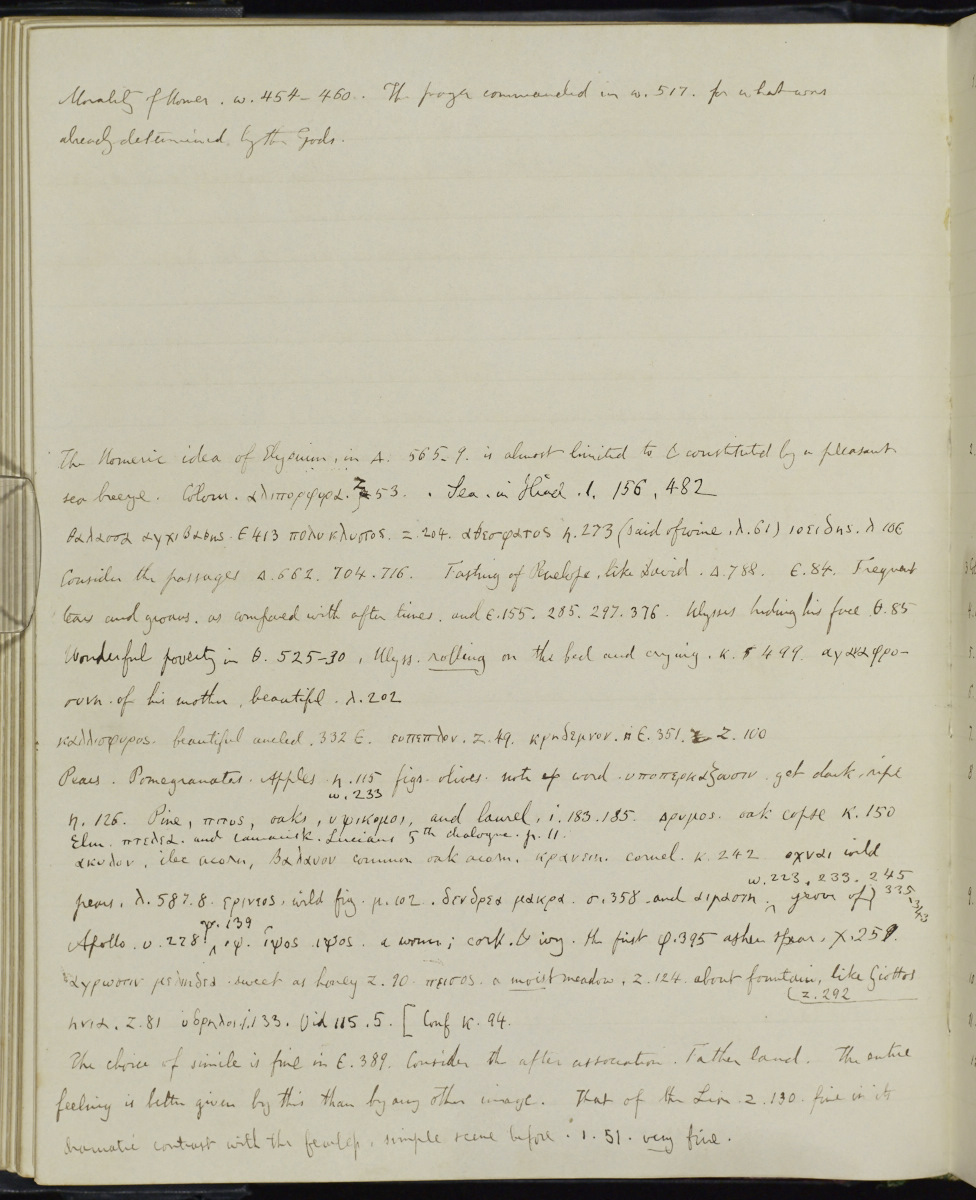 Morality of Homer. ω. 454-460. The prayer commanded in ω. 517. for what was
already determined by the Gods.
The Homeric idea of Elysium, in Δ. 565-9. is almost limited to & constituted by a pleasant
sea breeze. Colour. αλιπορφυρα. Z 53. . Sea. in Iliad. 1. 156, 482
θαλασσα αγχιβαθης. Ε 413 πολυκλυστος. Ζ. 204. αθεσφατος η. 273 (said of wine, λ. 61) ιοειδης. λ 106
Consider the passages Δ. 662. 704. 716. Fasting of Penelope, like David. Δ. 788. Ε. 84. Frequent
tears and groans, as compared with after times, and ε. 155. 285. 297. 376. Ulysses hiding his face θ. 85
Wonderful poverty in θ. 525-30, Ulyss. rolling on the bed and crying. κ. 499. αγαοφρο-
συνη of his mother, beautiful. λ. 202
καλλισφυρος. beautiful ancled. 332 Ε. ευπεπλον. Ζ. 49. κρηδεμνον. Ε. 351. Z. 100
Pears. Pomegranates. Apples η. 115 figs. olives. note of word υποπερκαζουσιν get dark, ripe
ω. 233
η. 126. Pine, πιτυς, oaks, υψικομος, and laurel, ι. 183. 185. Δρυμος. oak copse κ. 150
Elm. πτελεα. and tamarisk. Lucians 5th dialogue. p. 11.
ακυλον, ilex acorn, βαλανον common oak acorn. κρανειη. cornel. κ. 242 οχναι wild
ω. 223. 233. 245
pears, λ. 587. 8. ερινεος. wild fig. μ. 102. δενδρεα μακρα. σ. 358 and αιμασιη. grove of) 335. 343
φ. 139
Apollo. υ. 278, ιψ. ιψος ιψος. a worm; cork. & ivy. the first φ. 395 ashen spear. χ. 259.
αγρωστιν μελιηδεα sweet as honey ζ. 90. πεισος. a moist meadow. ζ. 124. about fountain, like Giottos
(ζ. 292
ηνια. ζ. 81 υδρηλοι ι. 133. Vid 115. 5. [Conf κ. 94.
The choice of simile is fine in Ε. 389. Consider the after association. Father land. The entire
feeling is better given by this than by any other image. That of the Lion ζ. 130. fine in its
dramatic contrast with the fearless, simple scene before. 1. 51. very fine.